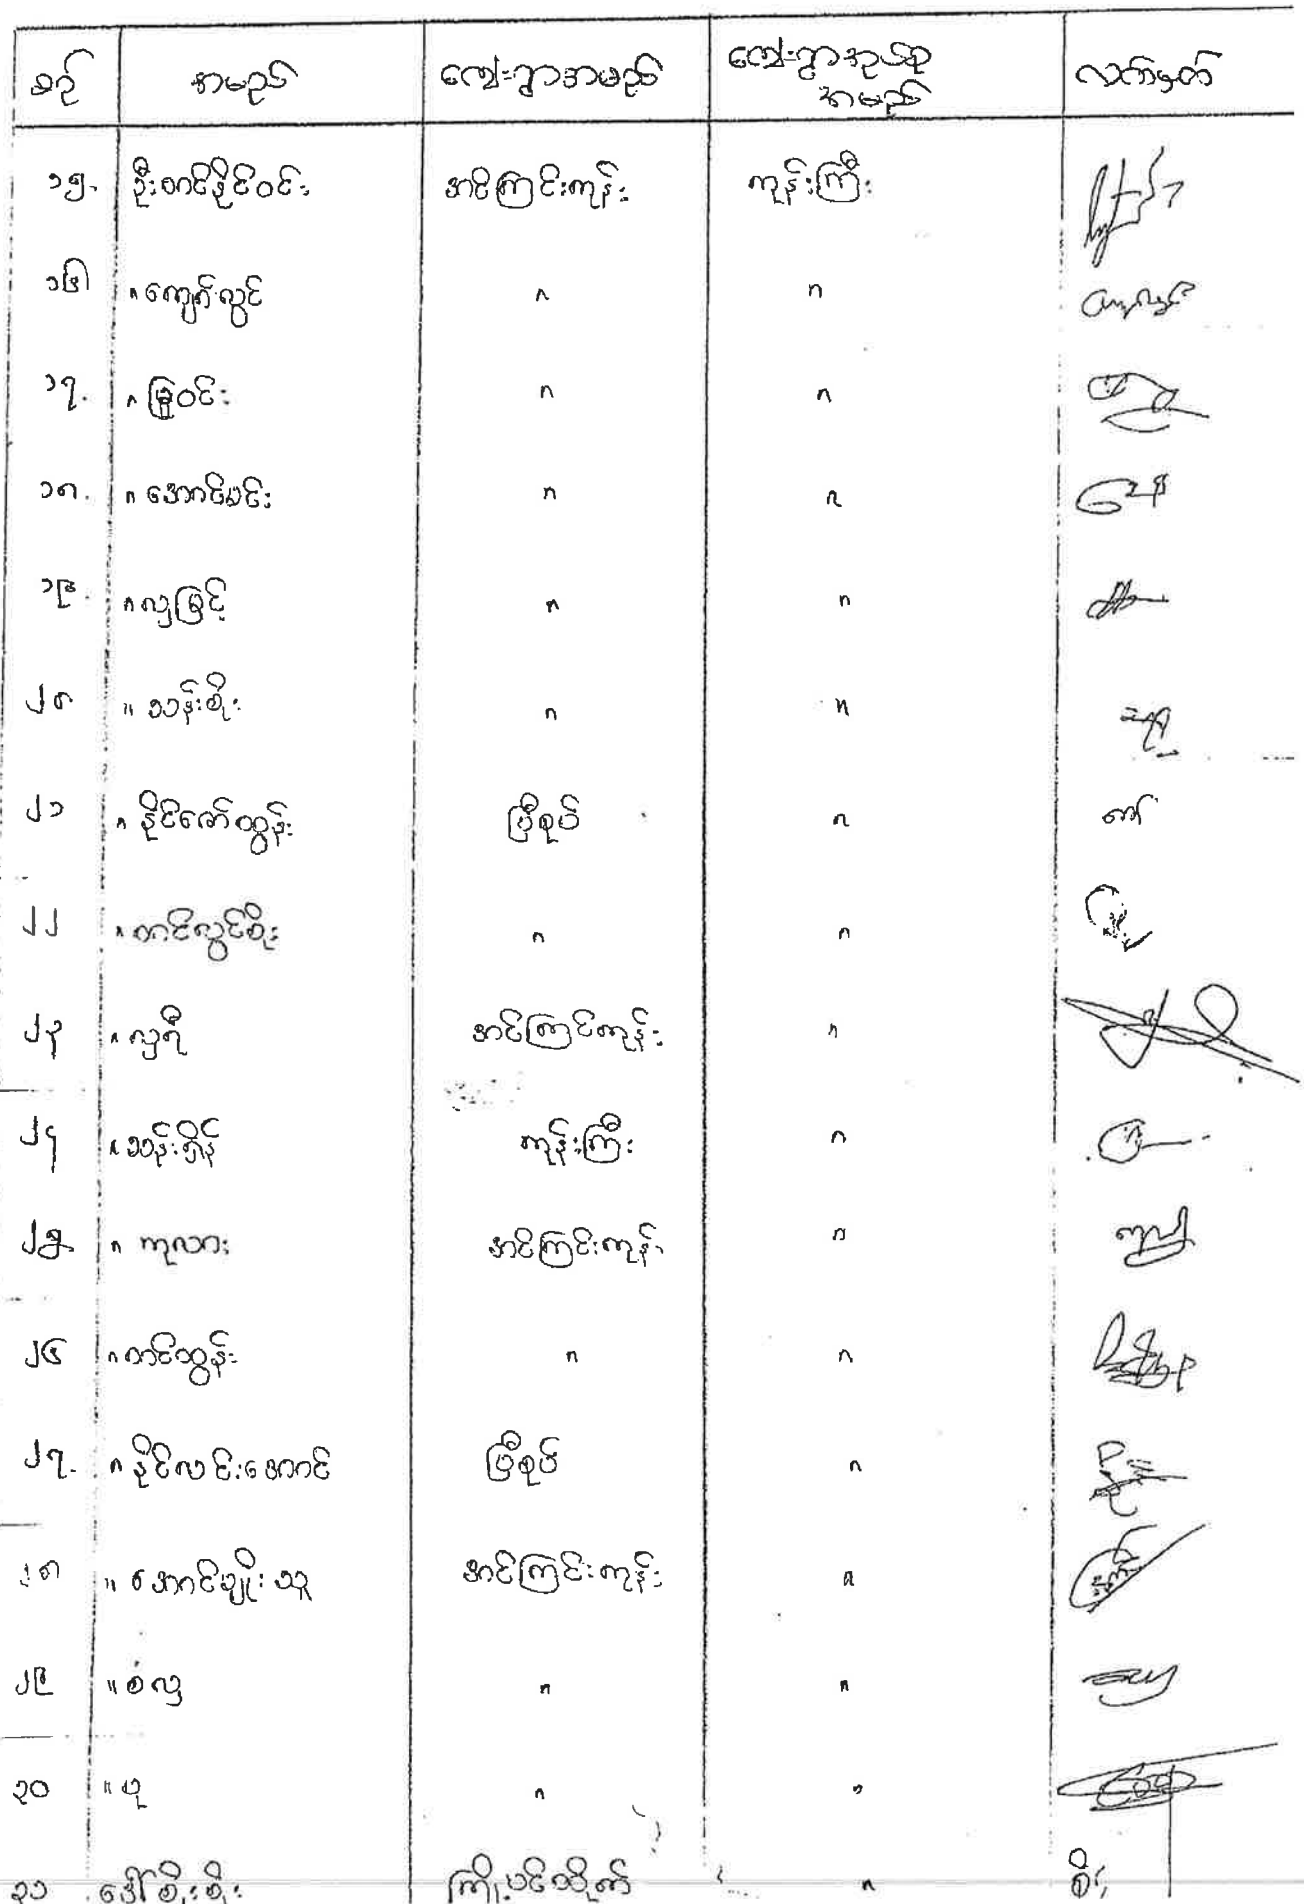 စဉ် အမည် ကျေးရွာအမည် ကျေးရွာအုပ်စု လက်မှတ်
အမည်
၁၅. ဦးတင်နိုင်ဝင်း အင်ကြင်းကုန်း ကုန်းကြီး
၁၆ " ကျော်လွင် " "
၁၇. " မြူဝင်း " "
၁၈. " အောင်မင်း " "
၁၉. " လှမြင့် " "
၂၀ " သန်းစိုး " "
၂၁ " နိုင်ဇော်ထွန်း ပြီစုပ် "
၂၂ " တင်လွင်စိုး " "
၂၃ " လှရီ အင်ကြင်ကုန်း "
၂၄ " သန်းရှိန် ကုန်းကြီး "
၂၅ " ကုလား အင်ကြင်းကုန်း "
၂၆ " တင်ထွန်း " "
၂၇. " နိုင်လင်းအောင် ပြီစုပ် "
၂၈ " အောင်မျိုးသူ အင်ကြင်းကုန်း "
၂၉ " စံလှ " "
၃၀ " ပု " "
၃၁ ဒေါ်စိုးစိုး ကြို့ပင်သိုက် "